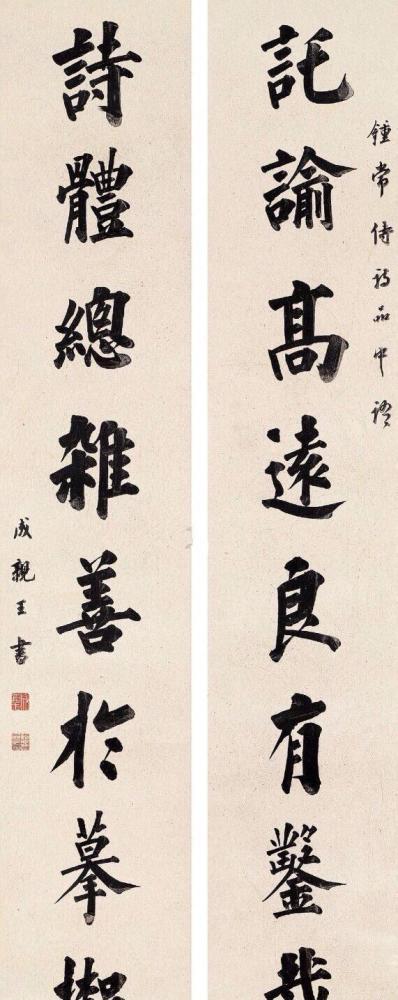 鍾常侍詩品中語
託諭髙遠良有鑿
詩體總雜善於摹
成親王書